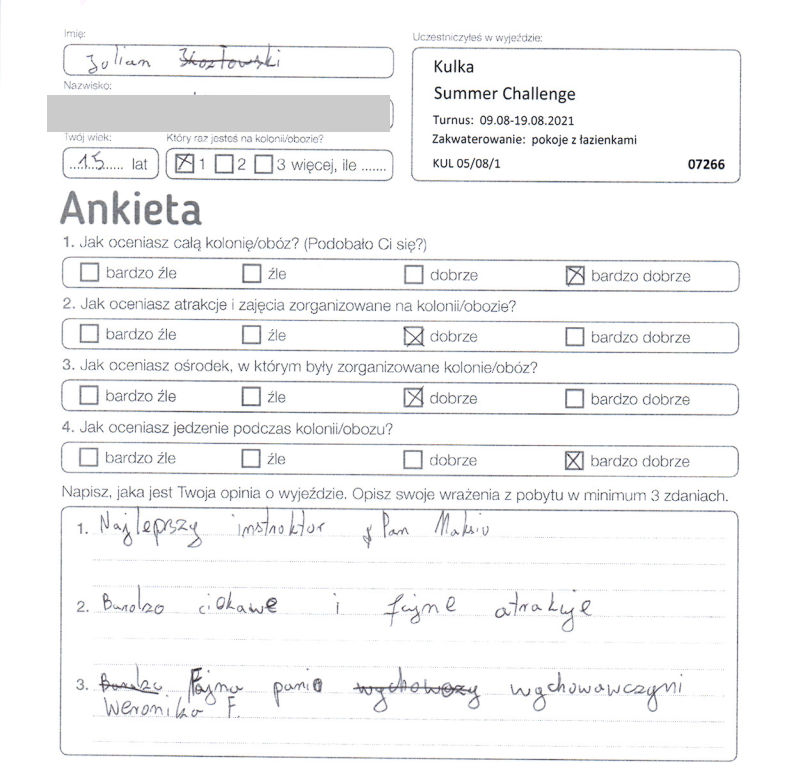 Imię:
Uczestniczyłeś w wyjeździe:
Julian
Kulka
Summer Challenge
Nazwisko:
Turnus: 09.08-19.08.2021
Zakwaterowanie: pokoje z łazienkami
KUL 05/08/1 07266
Twój wiek: Który raz jesteś na kolonii/obozie?
15 lat 1 2 3 więcej, ile .......
Ankieta
1. Jak oceniasz całą kolonię/obóz? (Podobało Ci się?)
bardzo źle źle dobrze bardzo dobrze
2. Jak oceniasz atrakcje i zajęcia zorganizowane na kolonii/obozie?
bardzo źle źle dobrze bardzo dobrze
3. Jak oceniasz ośrodek, w którym były zorganizowane kolonie/obóz?
bardzo źle źle dobrze bardzo dobrze
4. Jak oceniasz jedzenie podczas kolonii/obozu?
bardzo źle źle dobrze bardzo dobrze
Napisz, jaka jest Twoja opinia o wyjeździe. Opisz swoje wrażenia z pobytu w minimum 3 zdaniach.
1. Najleprzy instruktor Pan Maksiu
2. Bardzo ciekawe i fajne atrakcje
3. Fajna pani wychowawczyni
Weronika F.